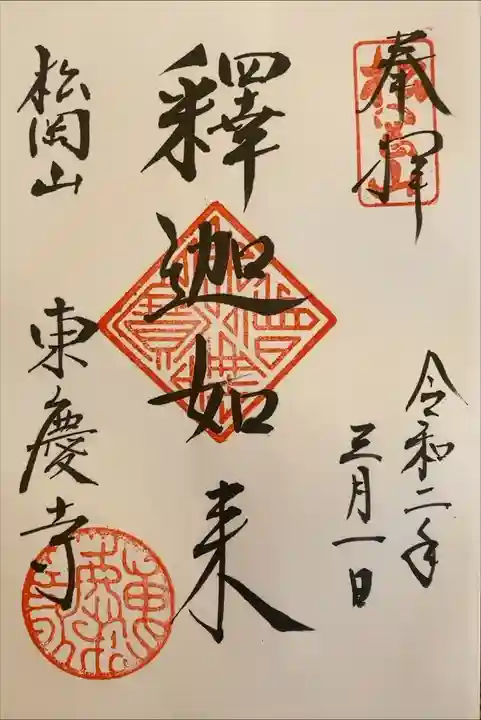 奉拝
令和二年
三月一日
釋迦如来
松岡山
東慶寺